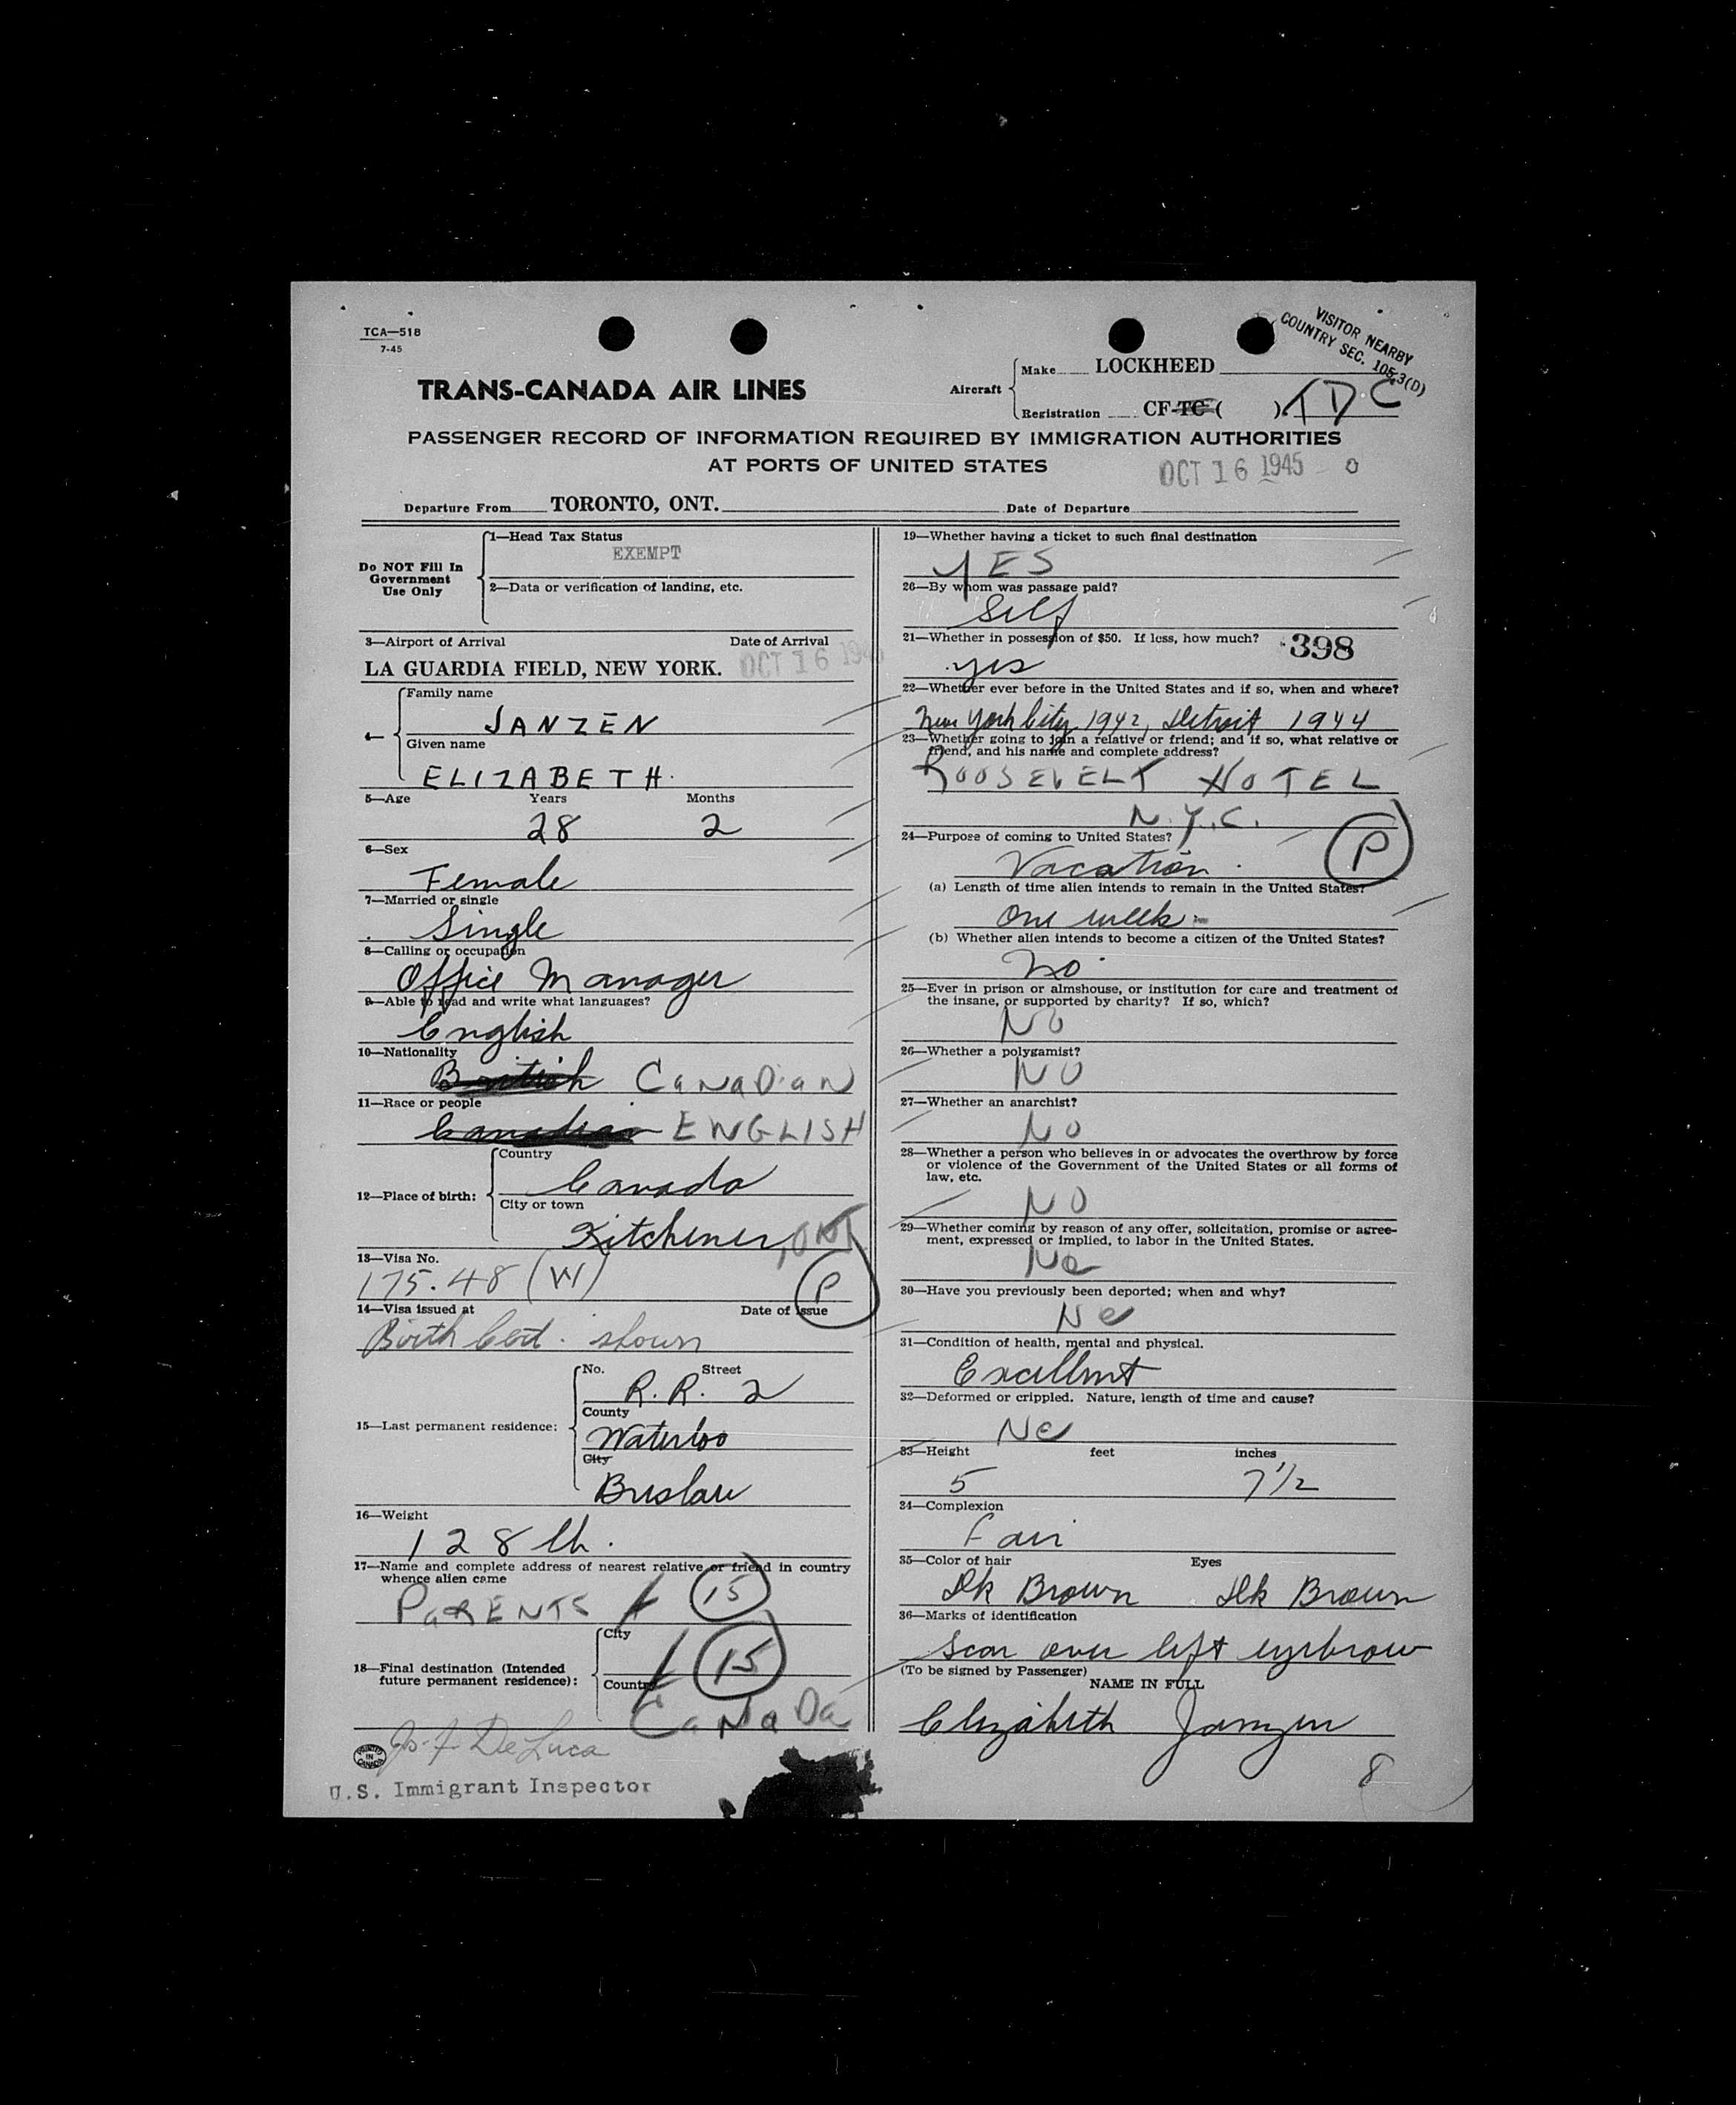 TCA—518
7-45
VISITOR NEARBY
COUNTRY SEC. 105.3(D)
TRANS-CANADA AIR LINES
Aircraft
Make LOCKHEED
Registration CF-TC ( ) TDC
PASSENGER RECORD OF INFORMATION REQUIRED BY IMMIGRATION AUTHORITIES
AT PORTS OF UNITED STATES
OCT 16 1945
Departure From TORONTO, ONT. Date of Departure
Do NOT Fill In
Government
Use Only
1—Head Tax Status
EXEMPT
2—Data or verification of landing, etc.
3—Airport of Arrival Date of Arrival
LA GUARDIA FIELD, NEW YORK. OCT 16 1945
4—
Family name
JANZEN
Given name
ELIZABETH.
5—Age Years Months
28 2
6—Sex
Female
7—Married or single
Single
8—Calling or occupation
Office Manager
9—Able to read and write what languages?
English
10—Nationality
British CANADIAN
11—Race or people
Canadian ENGLISH
12—Place of birth:
Country
Canada
City or town
Kitchener, ONT
13—Visa No.
175.48 (W) P
14—Visa issued at Date of issue
Birth Cert. shown
15—Last permanent residence:
No. Street
R.R. 2
County
Waterloo
City
Breslau
16—Weight
128 lb.
17—Name and complete address of nearest relative or friend in country
whence alien came
PARENTS 15
18—Final destination (Intended
future permanent residence):
City
15
Country
CANADA
Jos. F. DeLuca
PRINTED IN CANADA
U.S. Immigrant Inspector
19—Whether having a ticket to such final destination
YES
20—By whom was passage paid?
Self
21—Whether in possession of $50. If less, how much? 398
yes
22—Whether ever before in the United States and if so, when and where?
New York City 1942, Detroit 1944
23—Whether going to join a relative or friend; and if so, what relative or
friend, and his name and complete address?
ROOSEVELT HOTEL
N.Y.C.
24—Purpose of coming to United States?
Vacation. P
(a) Length of time alien intends to remain in the United States?
One week
(b) Whether alien intends to become a citizen of the United States?
No
25—Ever in prison or almshouse, or institution for care and treatment of
the insane, or supported by charity? If so, which?
No
26—Whether a polygamist?
NO
27—Whether an anarchist?
NO
28—Whether a person who believes in or advocates the overthrow by force
or violence of the Government of the United States or all forms of
law, etc.
NO
29—Whether coming by reason of any offer, solicitation, promise or agree-
ment, expressed or implied, to labor in the United States.
No
30—Have you previously been deported; when and why?
No
31—Condition of health, mental and physical.
Excellent
32—Deformed or crippled. Nature, length of time and cause?
No
33—Height feet inches
5 7½
34—Complexion
Fair
35—Color of hair Eyes
Dk Brown Dk Brown
36—Marks of identification
Scar over left eyebrow
(To be signed by Passenger)
NAME IN FULL
Elizabeth Janzen
8